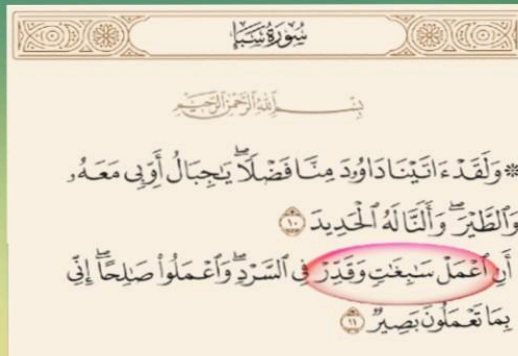 سُورَةُ سَبَإٍ
بِسْمِ اللَّهِ الرَّحْمَٰنِ الرَّحِيمِ
۞ وَلَقَدْ ءَاتَيْنَا دَاوُۥدَ مِنَّا فَضْلًاۖ يَٰجِبَالُ أَوِّبِى مَعَهُۥ
وَٱلطَّيْرَۖ وَأَلَنَّا لَهُ ٱلْحَدِيدَ ١٠
أَنِ ٱعْمَلْ سَٰبِغَٰتٍ وَقَدِّرْ فِى ٱلسَّرْدِۖ وَٱعْمَلُوا۟ صَٰلِحًاۖ إِنِّى
بِمَا تَعْمَلُونَ بَصِيرٌ ١١